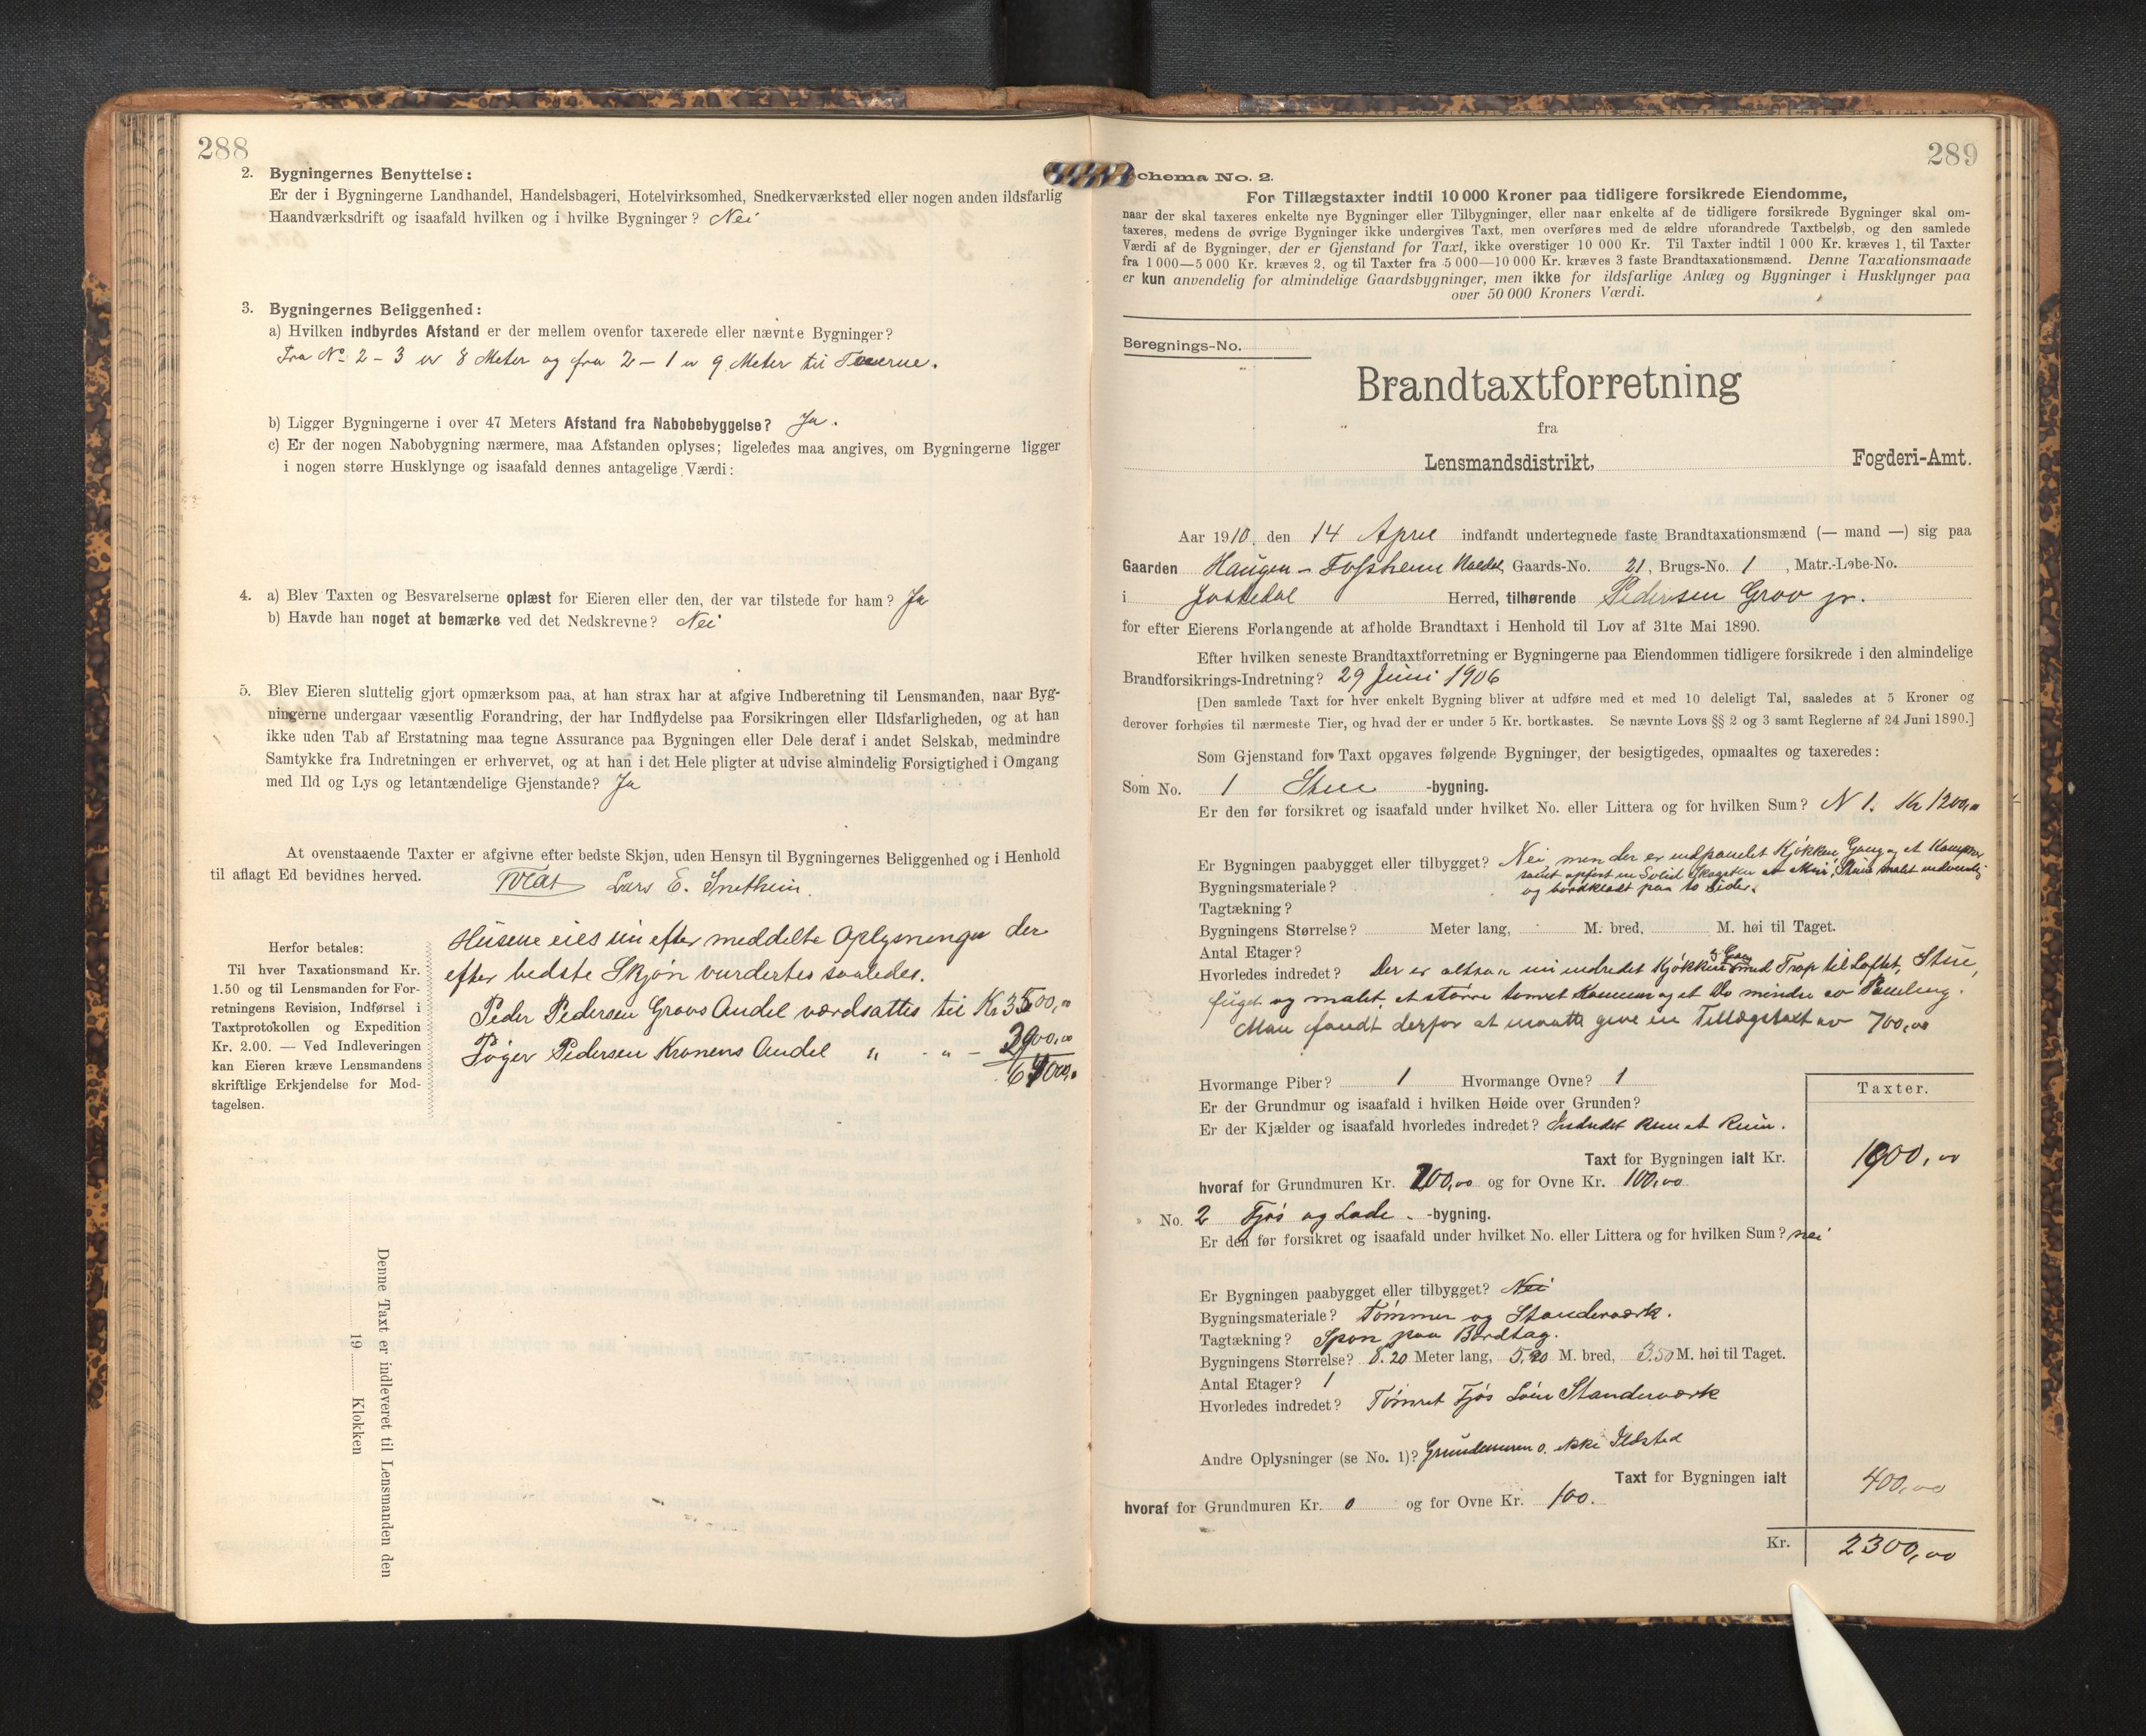 288
2. Bygningernes Benyttelse:
Er der i Bygningerne Landhandel, Handelsbageri, Hotelvirksomhed, Snedkerværksted eller nogen anden ildsfarlig
Haandværksdrift og isaafald hvilken og i hvilke Bygninger? Nei
3. Bygningernes Beliggenhed:
a) Hvilken indbyrdes Afstand er der mellem ovenfor taxerede eller nævnte Bygninger?
Fra No 2 - 3 er 8 Meter og fra 2 - 1 er 9 Meter til
b) Ligger Bygningerne i over 47 Meters Afstand fra Nabobebyggelse? Ja.
c) Er der nogen Nabobygning nærmere, maa Afstanden oplyses; ligeledes maa angives, om Bygningerne ligger
i nogen større Husklynge og isaafald dennes antagelige Værdi:
4. a) Blev Taxten og Besvarelserne oplæst for Eieren eller den, der var tilstede for ham? Ja
b) Havde han noget at bemærke ved det Nedskrevne? Nei
5. Blev Eieren sluttelig gjort opmærksom paa, at han strax har at afgive Indberetning til Lensmanden, naar Byg-
ningerne undergaar væsentlig Forandring, der har Indflydelse paa Forsikringen eller Ildsfarligheden, og at han
ikke uden Tab af Erstatning maa tegne Assurance paa Bygningen eller Dele deraf i andet Selskab, medmindre
Samtykke fra Indretningen er erhvervet, og at han i det Hele pligter at udvise almindelig Forsigtighed i Omgang
med Ild og Lys og letantændelige Gjenstande? Ja
At ovenstaaende Taxter er afgivne efter bedste Skjøn, uden Hensyn til Bygningernes Beliggenhed og i Henhold
til aflagt Ed bevidnes herved. Lars E. Snetheim.
Husene eies iñ efter meddelte Oplysninger der
efter bedste Skjøn vurdertes saaledes.
Peder Pedersen Groos Andel værdsattes til Kr 3500,00
Pedersen Kronens Andel " - " - 2900,00
Herfor betales:
Til hver Taxationsmand Kr.
1.50 og til Lensmanden for For-
retningens Revision, Indførsel i
Taxtprotokollen og Expedition
Kr. 2.00. — Ved Indleveringen
kan Eieren kræve Lensmandens
skriftlige Erkjendelse for Mod-
tagelsen.
Denne Taxt er indleveret til Lensmanden den
19 Klokken
289
chema No. 2.
For Tillægstaxter indtil 10 000 Kroner paa tidligere forsikrede Eiendomme,
naar der skal taxeres enkelte nye Bygninger eller Tilbygninger, eller naar enkelte af de tidligere forsikrede Bygninger skal om-
taxeres, medens de øvrige Bygninger ikke undergives Taxt, men overføres med de ældre uforandrede Taxtbeløb, og den samlede
Værdi af de Bygninger, der er Gjenstand for Taxt, ikke overstiger 10 000 Kr. Til Taxter indtil 1 000 Kr. kræves 1, til Taxter
fra 1 000—5 000 Kr. kræves 2, og til Taxter fra 5 000—10 000 Kr. kræves 3 faste Brandtaxationsmænd. Denne Taxationsmaade
er kun anvendelig for almindelige Gaardsbygninger, men ikke for ildsfarlige Anlæg og Bygninger i Husklynger paa
over 50 000 Kroners Værdi.
Beregnings-No.
Brandtaxtforretning
fra
Lensmandsdistrikt, Fogderi-Amt.
Aar 1910, den 14 April indfandt undertegnede faste Brandtaxationsmænd (— mand —) sig paa
Gaarden Haugen - Fossheim Gaards-No. 21, Brugs-No. 1, Matr.-Løbe-No.
i Jostedal Herred, tilhørende Pedersen Groo jr.
for efter Eierens Forlangende at afholde Brandtaxt i Henhold til Lov af 31te Mai 1890.
Efter hvilken seneste Brandtaxtforretning er Bygningerne paa Eiendommen tidligere forsikrede i den almindelige
Brandforsikrings-Indretning? 29 Juni 1906
[Den samlede Taxt for hver enkelt Bygning bliver at udføre med et med 10 deleligt Tal, saaledes at 5 Kroner og
derover forhøies til nærmeste Tier, og hvad der er under 5 Kr. bortkastes. Se nævnte Lovs §§ 2 og 3 samt Reglerne af 24 Juni 1890.]
Som Gjenstand for Taxt opgaves følgende Bygninger, der besigtigedes, opmaaltes og taxeredes:
Som No. 1 Stue -bygning.
Er den før forsikret og isaafald under hvilket No. eller Littera og for hvilken Sum? N 1. Kr 1200,00
Er Bygningen paabygget eller tilbygget? Nei, men der er indpanelet Kjøkken, Gang og et Kammer
Bygningsmateriale? samt opført en Solid Skorsten av Mur, Stuen malet indvendig
og bordklædt paa to Sider.
Tagtækning?
Bygningens Størrelse? Meter lang, M. bred, M. høi til Taget.
Antal Etager?
Hvorledes indredet? Der er altsaa nu indredet Kjøkken & Gang med Trap til Loftet, Stue,
fuget og malet, et større tomret Kammer og et Do mindre av Paneling.
Man fandt derfor at maatte give en Tillægstaxt av 700,00
Hvormange Piber? 1 Hvormange Ovne? 1
Er der Grundmur og isaafald i hvilken Høide over Grunden?
Er der Kjælder og isaafald hvorledes indredet? Indredet kun et Rum.
Taxter.
Taxt for Bygningen ialt Kr. 1900,00
hvoraf for Grundmuren Kr. 200,00 og for Ovne Kr. 100,00
No. 2 Fjøs og Lade -bygning.
Er den før forsikret og isaafald under hvilket No. eller Littera og for hvilken Sum? nei
Er Bygningen paabygget eller tilbygget? Nei
Bygningsmateriale? Tømmer og Standerværk.
Tagtækning? Spon paa Bordtag.
Bygningens Størrelse? 8.20 Meter lang, 5,20 M. bred, 3.50 M. høi til Taget.
Antal Etager? 1
Hvorledes indredet? Tømret Fjøs Løen Standerværk
Andre Oplysninger (se No. 1)? Grundmuren 0. ikke Ildsted
Taxt for Bygningen ialt 400,00
hvoraf for Grundmuren Kr. 0 og for Ovne Kr. 100.
Kr. 2300,00